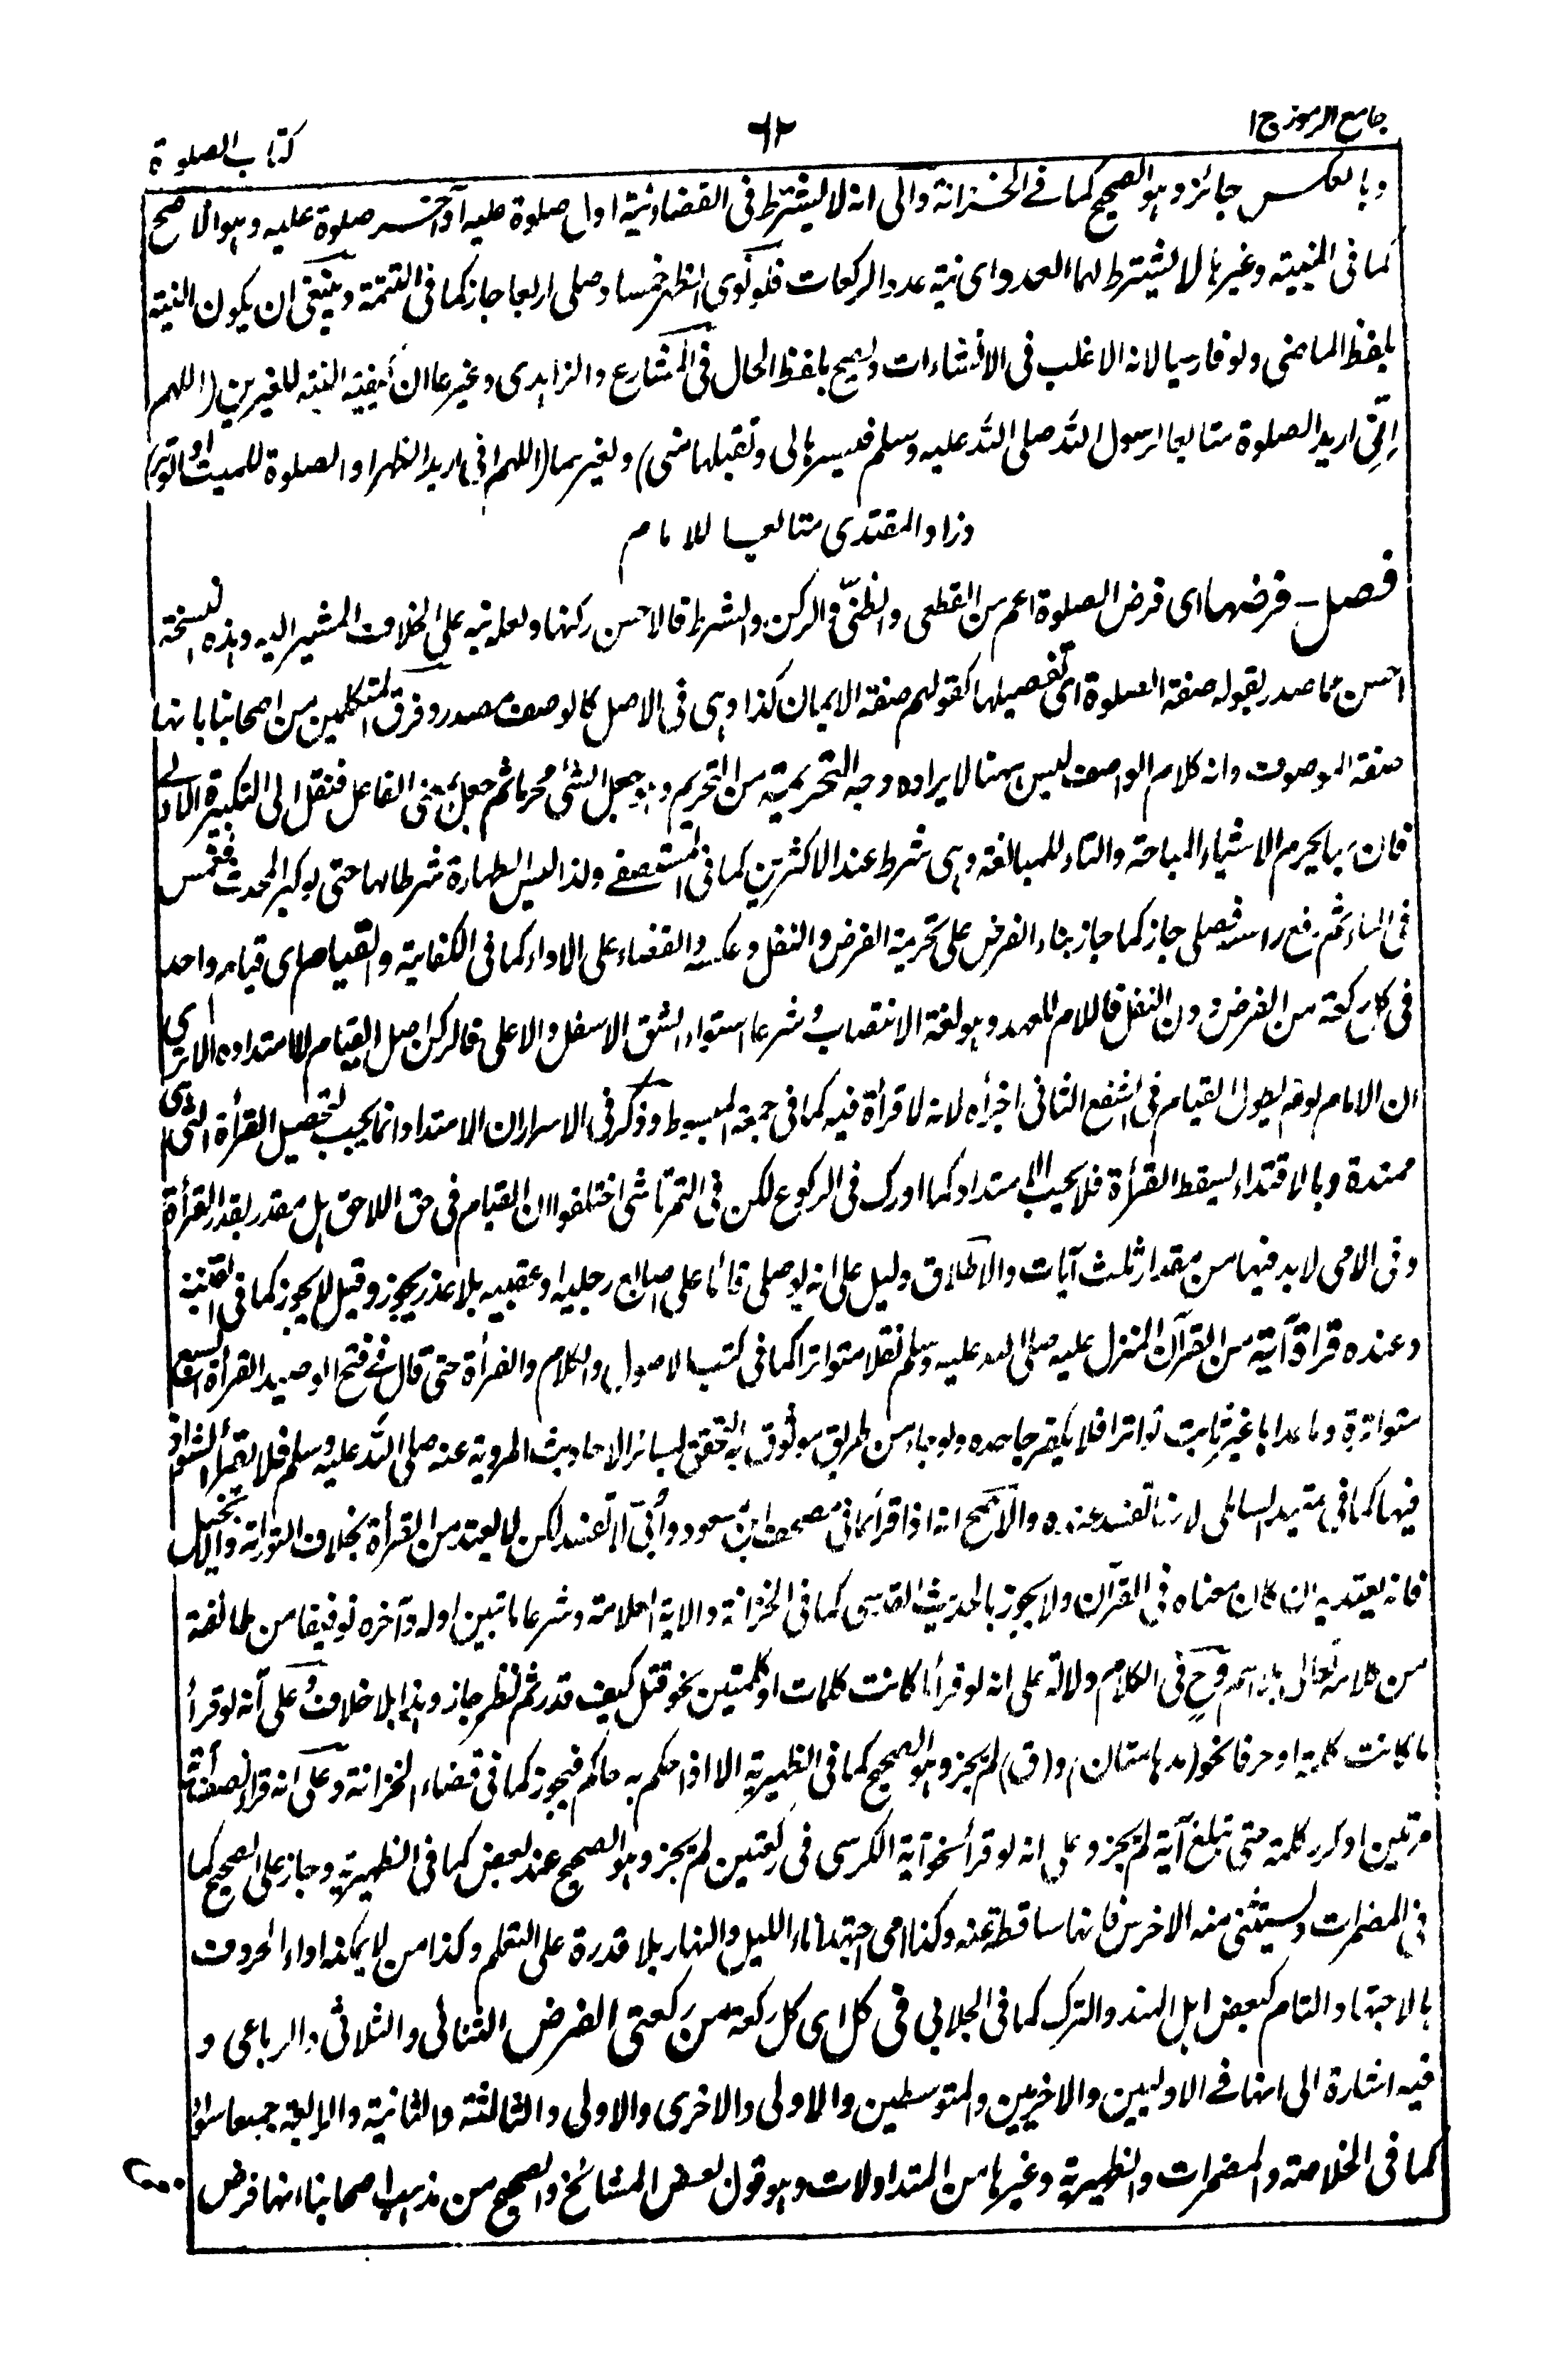 جامع الرموز ج ١
٦٢
كتاب الصلوة
وبالعكس جائز وهو الصحيح كما في الخزانة والى انه لا يشترط في القضاء نية اول صلوة عليه او آخر صلوة عليه وهو الاصح
كما في المنية وغيرها لا يشترط لها العدد اى نية عدد الركعات فلو نوى الظهر خمسا وصلى اربعا جاز كما في التتمة وينبغى ان يكون النية
بلفظ الماضى ولو فارسيا لانه الاغلب فى الانشاءات ويصح بلفظ الحال فى المشارع والزاهدى وغيرها ان كيفية النية للغيرين (اللهم
اِنّى اريد الصلوة متابعا لرسول الله صلى الله عليه وسلم فيسرها لى وتقبلها منى) ولغيرهما (اللهم انى اريد الظهر او الصلوة للميت او الوتر)
وزاد المقتدى متابعا للامام
فصل- فرضها اى فرض الصلوة اعم من القطعى والظنّى والركن والشرط فالاحسن ركنها ولعله نبه على الخلاف المشير اليه وهذه النسخة
احسن مما صدر بقوله صفة الصلوة اى تفصيلها كقولهم صفة الايمان كذا وهى فى الاصل كالوصف مصدر وفرق المتكلمين من اصحابنا بانها
صفة الموصوف وانه كلام الواصف ليس ههنا لايراده وجه التحريمة من التحريم وهو جعل الشئ محرما ثم جعل بمعنى الفاعل فنقل الى التكبيرة الاولى
فان بها يحرم الاشياء المباحة والتاء للمبالغة وهى شرط عند الاكثرين كما فى المستصفى ولذا ليس الطهارة شرطا لها حتى لو كبر المحدث فغمس
فى الماء ثم رفع راسه فصلى جاز كما جاز بناء الفرض على تحريمة الفرض والنفل وعكسه والقضاء على الاداء كما فى الكفاية والقيام اى قيام واحد
فى كل ركعة من الفرض دون النفل فاللام للعهد وهو لغة الانتصاب وشرعا استواء الشق الاسفل والاعلى فالركن اصل القيام لا امتداده الا ترى
ان الامام لو لم يطول القيام فى الشفع الثانى اجزأه لانه لا قرأة فيه كما فى جمعة المبسوط وذكر فى الاسرار ان الامتداد انما يجب لتحصيل القرأة التى هى
ممتدة وبالاقتداء يسقط القرأة فلا يجب الامتداد كما ادرك فى الركوع لكن فى التمرتاشى اختلفوا ان القيام فى حق اللاحق هل مقدر بقدر القرأة
وفى الامى لا بد فيها من مقدار ثلث آيات والاطلاق دليل على انه لو صلى قائما على اصابع رجليه او عقبيه بلا عذر يجوز وقيل لا يجوز كما فى القنية
وعنده قراة آية من القرآن المنزل عليه صلى الله عليه وسلم نقلا متواترا كما فى كتب الاصول والكلام والقرأة حتى قال فى فتح الوصيد القرأة السبع
متواترة وما عداها غير ثابت تواترا فلا يكفر جاحده ولو جاء من طريق موثوق به التحقق بسائر الاحاديث المروية عنه صلى الله عليه وسلم فلا يقرأ الشواذ
فيها كما فى تمهيد السالمى لانها تفسد عنده والاصح انه اذا قرأ بما فى مصحف ابن مسعود وأبىّ لا تفسد لكن لا يعتد من القرأة بخلاف التوراة والانجيل
فانه يعتد به ان كان معناه فى القرآن ولا يجوز بالحديث القدسى كما فى الخزانة والاية العلامة وشرعا ما تبين اوله وآخره توقيفا من طائفة
من كلامه تعالى بلا اسم وحٍ فى الكلام دلالة على انه لو قرأ ما كانت كلمات او كلمتين نحو قتل كيف قدر ثم نظر جاز وهذا بلا خلاف وعلى انه لو قرأ
ما كانت كلمة او حرفا نحو (مدهامتان) و(ق) لم يجز وهو الصحيح كما فى الظهيرية الا اذا حكم به حاكم فيجوز كما فى قضاء الخزانة وعلى انه قرأ نصف آية
مرتين او كرر كلمة حتى تبلغ آية لم يجز وعلى انه لو قرأ نحو آية الكرسى فى ركعتين لم يجز وهو الصحيح عند بعض كما فى الظهيرية وجاز على الصحيح كما
فى المضمرات ويستثنى منه الاخرس فانها ساقطة عنه وكذا امى اجتهد اناء الليل والنهار بلا قدرة على التعلم وكذا من لا يمكنه اداء الحروف
بالاجتهاد التام كبعض اهل الهند والترك كما فى الجلابى فى كل اى كل ركعة من ركعتى الفرض الثنائى والثلاثى والرباعى و
فيه اشارة الى انها فى الاوليين والاخريين والمتوسطين والاولى والاخرى والاولى والثالثة والثانية والرابعة جميعا سواء
كما فى الخلاصة والمضمرات والظهيرية وغيرها من المتداولات وهو قول بعض المشائخ والصحيح من مذهب اصحابنا انها فرض